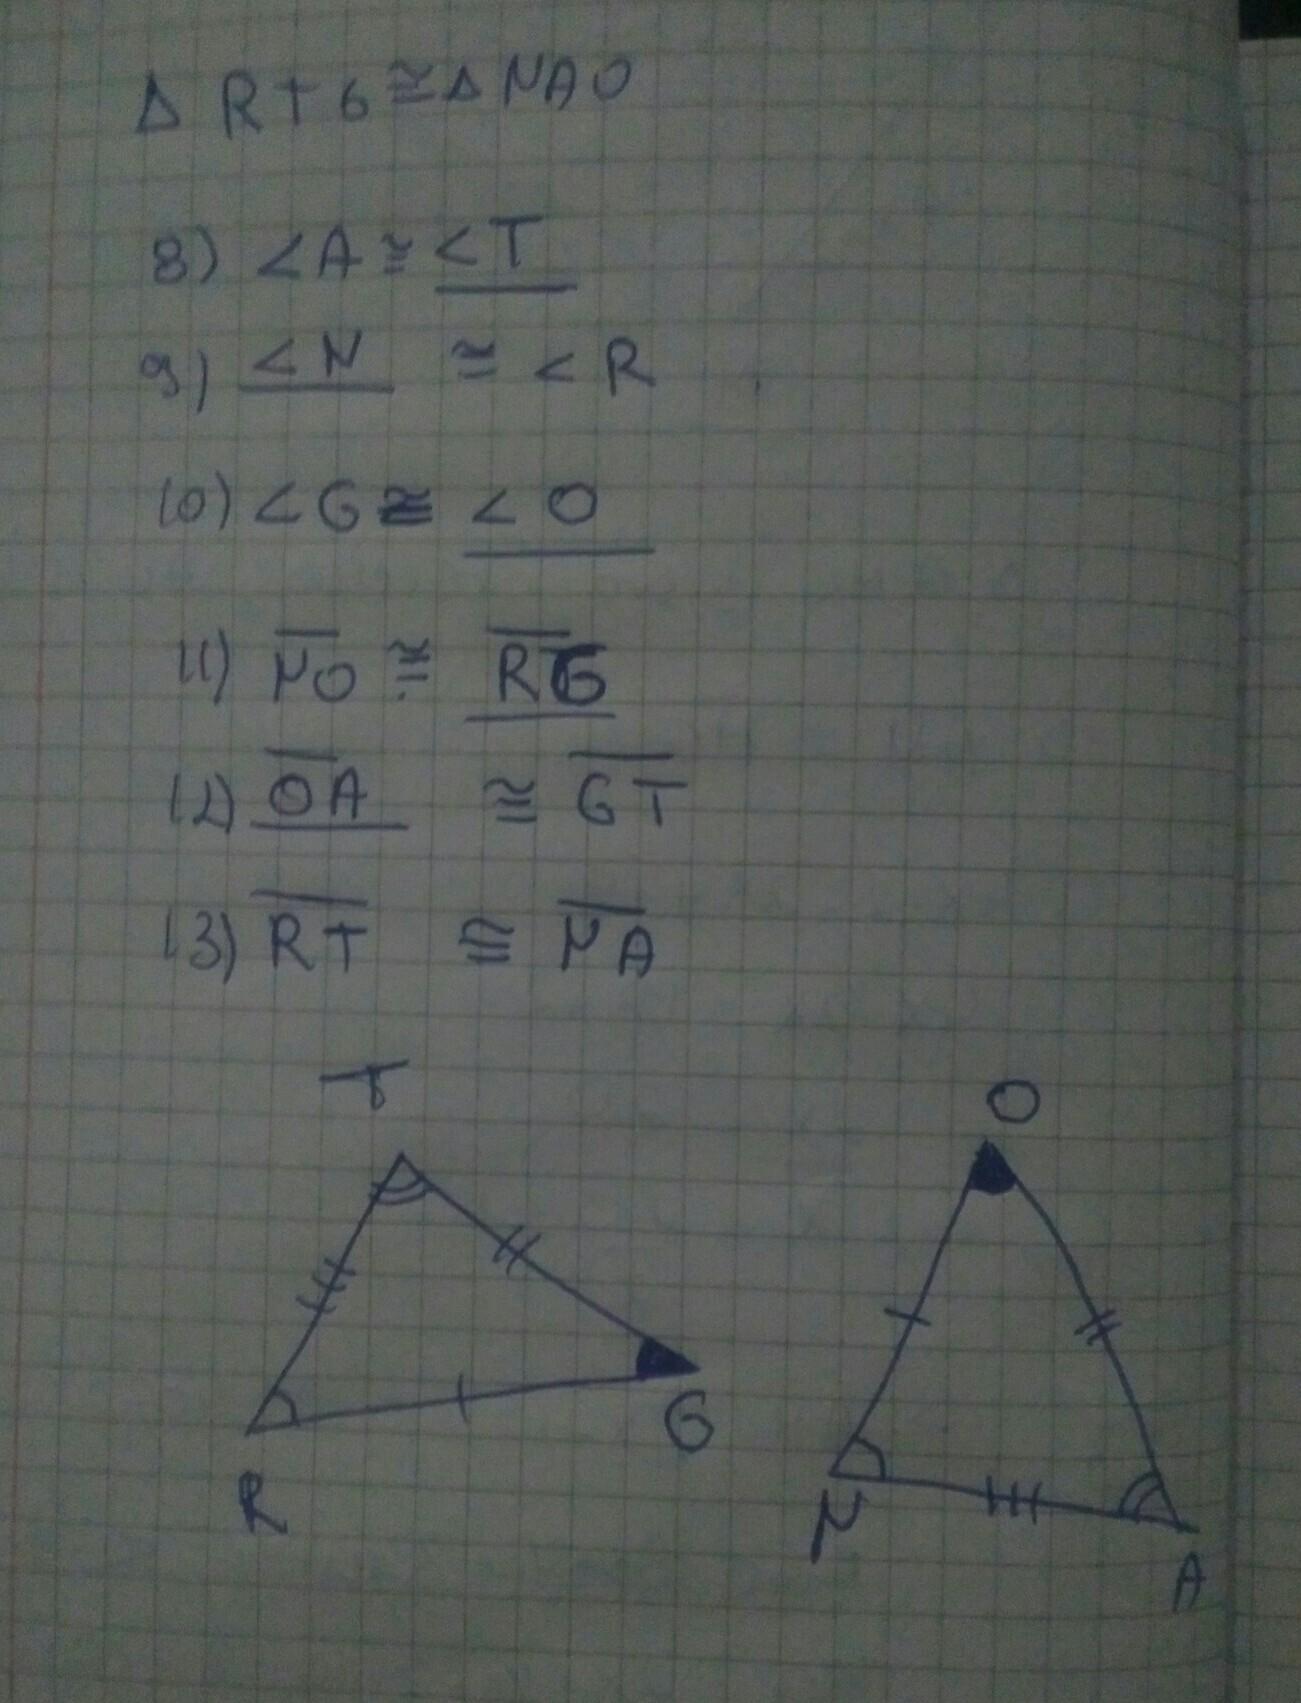 Δ RTG ≅ Δ NAO
8) <A ≅ <T
9) <N ≅ <R
10) <G ≅ <O
11) NO ≅ RG
12) OA ≅ GT
13) RT ≅ NA
T
O
G
R
N
A